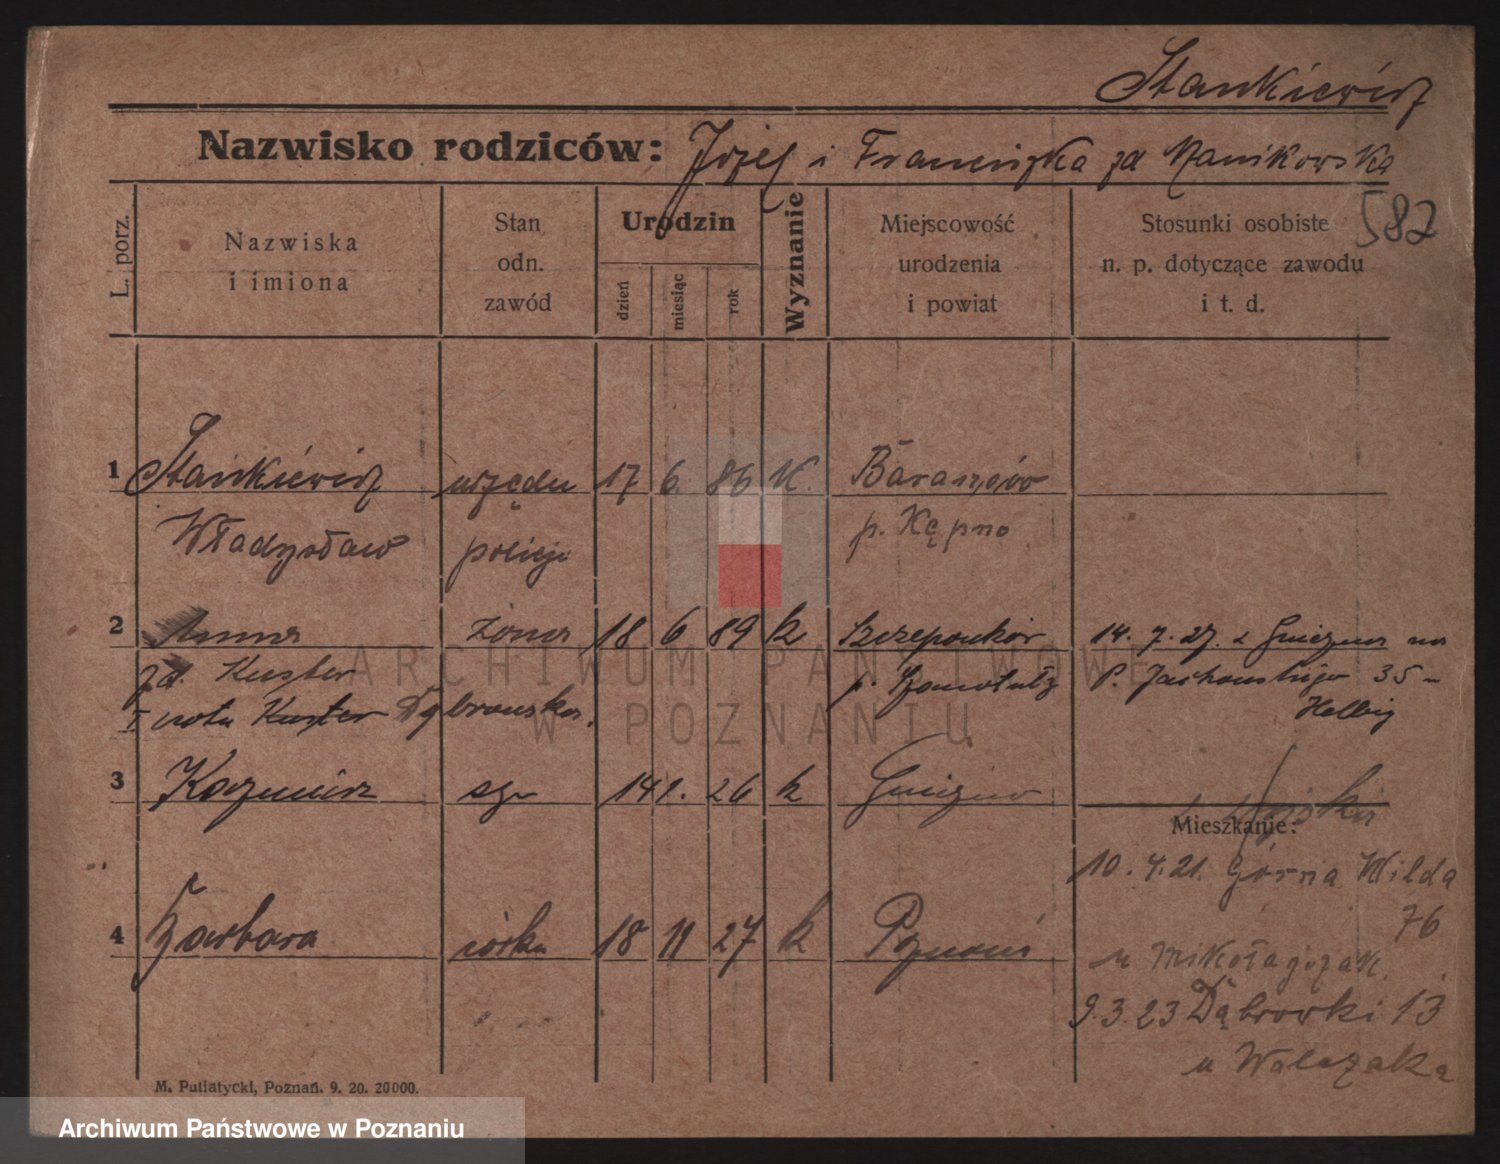 Stankiewicz
Nazwisko rodziców: Józef i Franciszka zd Manikowska
582
L. porz.
Nazwiska
i imiona
Stan
odn.
zawód
Urodzin
dzień
miesiąc
rok
Wyznanie
Miejscowość
urodzenia
i powiat
Stosunki osobiste
n. p. dotyczące zawodu
i t. d.
1 Stankiewicz urzędn 17 6. 86 K. Baranów
Władysław policji p. Kępno
2 Anna żona 18 6 89 k 14. 7. 27. z Gniezna na
zd. Kuster p. P. 35
Kuster Dąbrowska. Helbig
3 Kazimierz syn 14 1. 26 k Gniezno
Mieszkanie:
10. 4. 21. Górna Wilda
76
4 Barbara córka 18 11 27 k Poznań
u Mikołajczak
9. 3. 23 Dąbrowki 13
u Walczaka
M. Putiatycki, Poznań. 9. 20. 20000.
ARCHIWUM PAŃSTWOWE
W POZNANIU
Archiwum Państwowe w Poznaniu